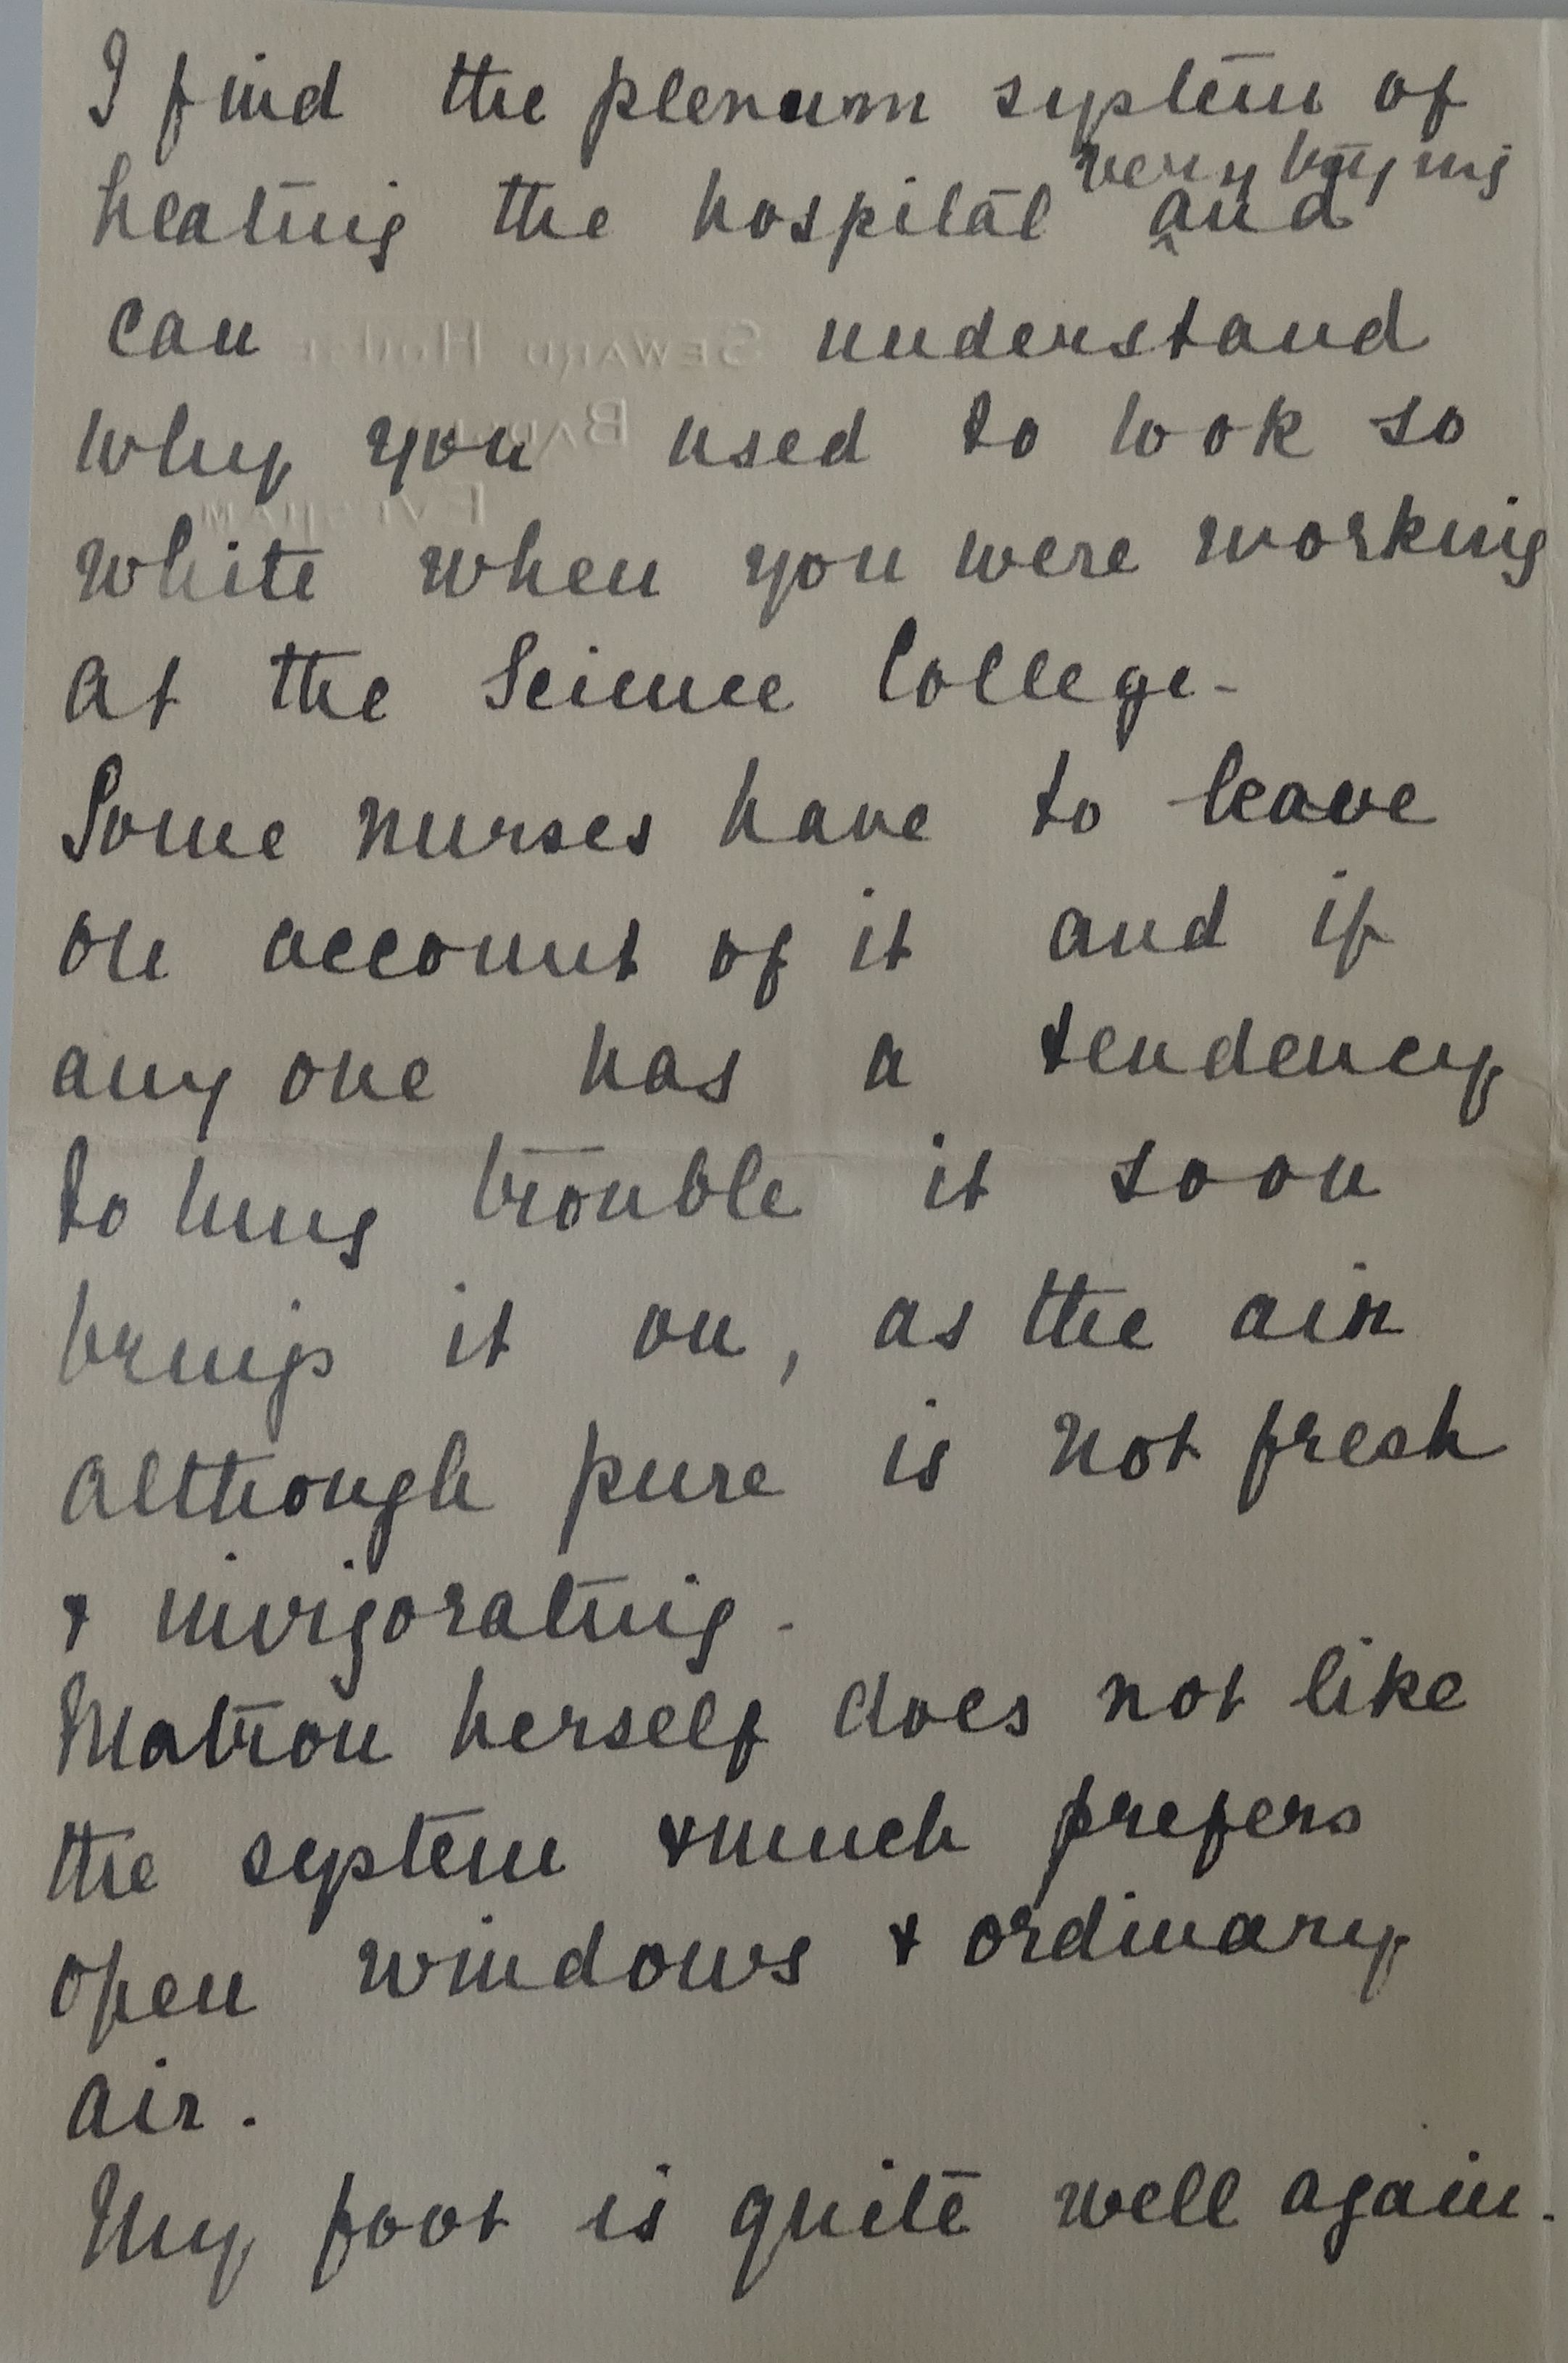 I find the plenum system of
very trying
heating the hospital ^ and
can understand
why you used to look so
white when you were working
at the Science College -
Some nurses have to leave
on account of it and if
any one has a tendency
to lung trouble it soon
brings it on, as the air
although pure is not fresh
& invigorating.
Matron herself does not like
the system & much prefers
open windows & ordinary
air.
My foot is quite well again.